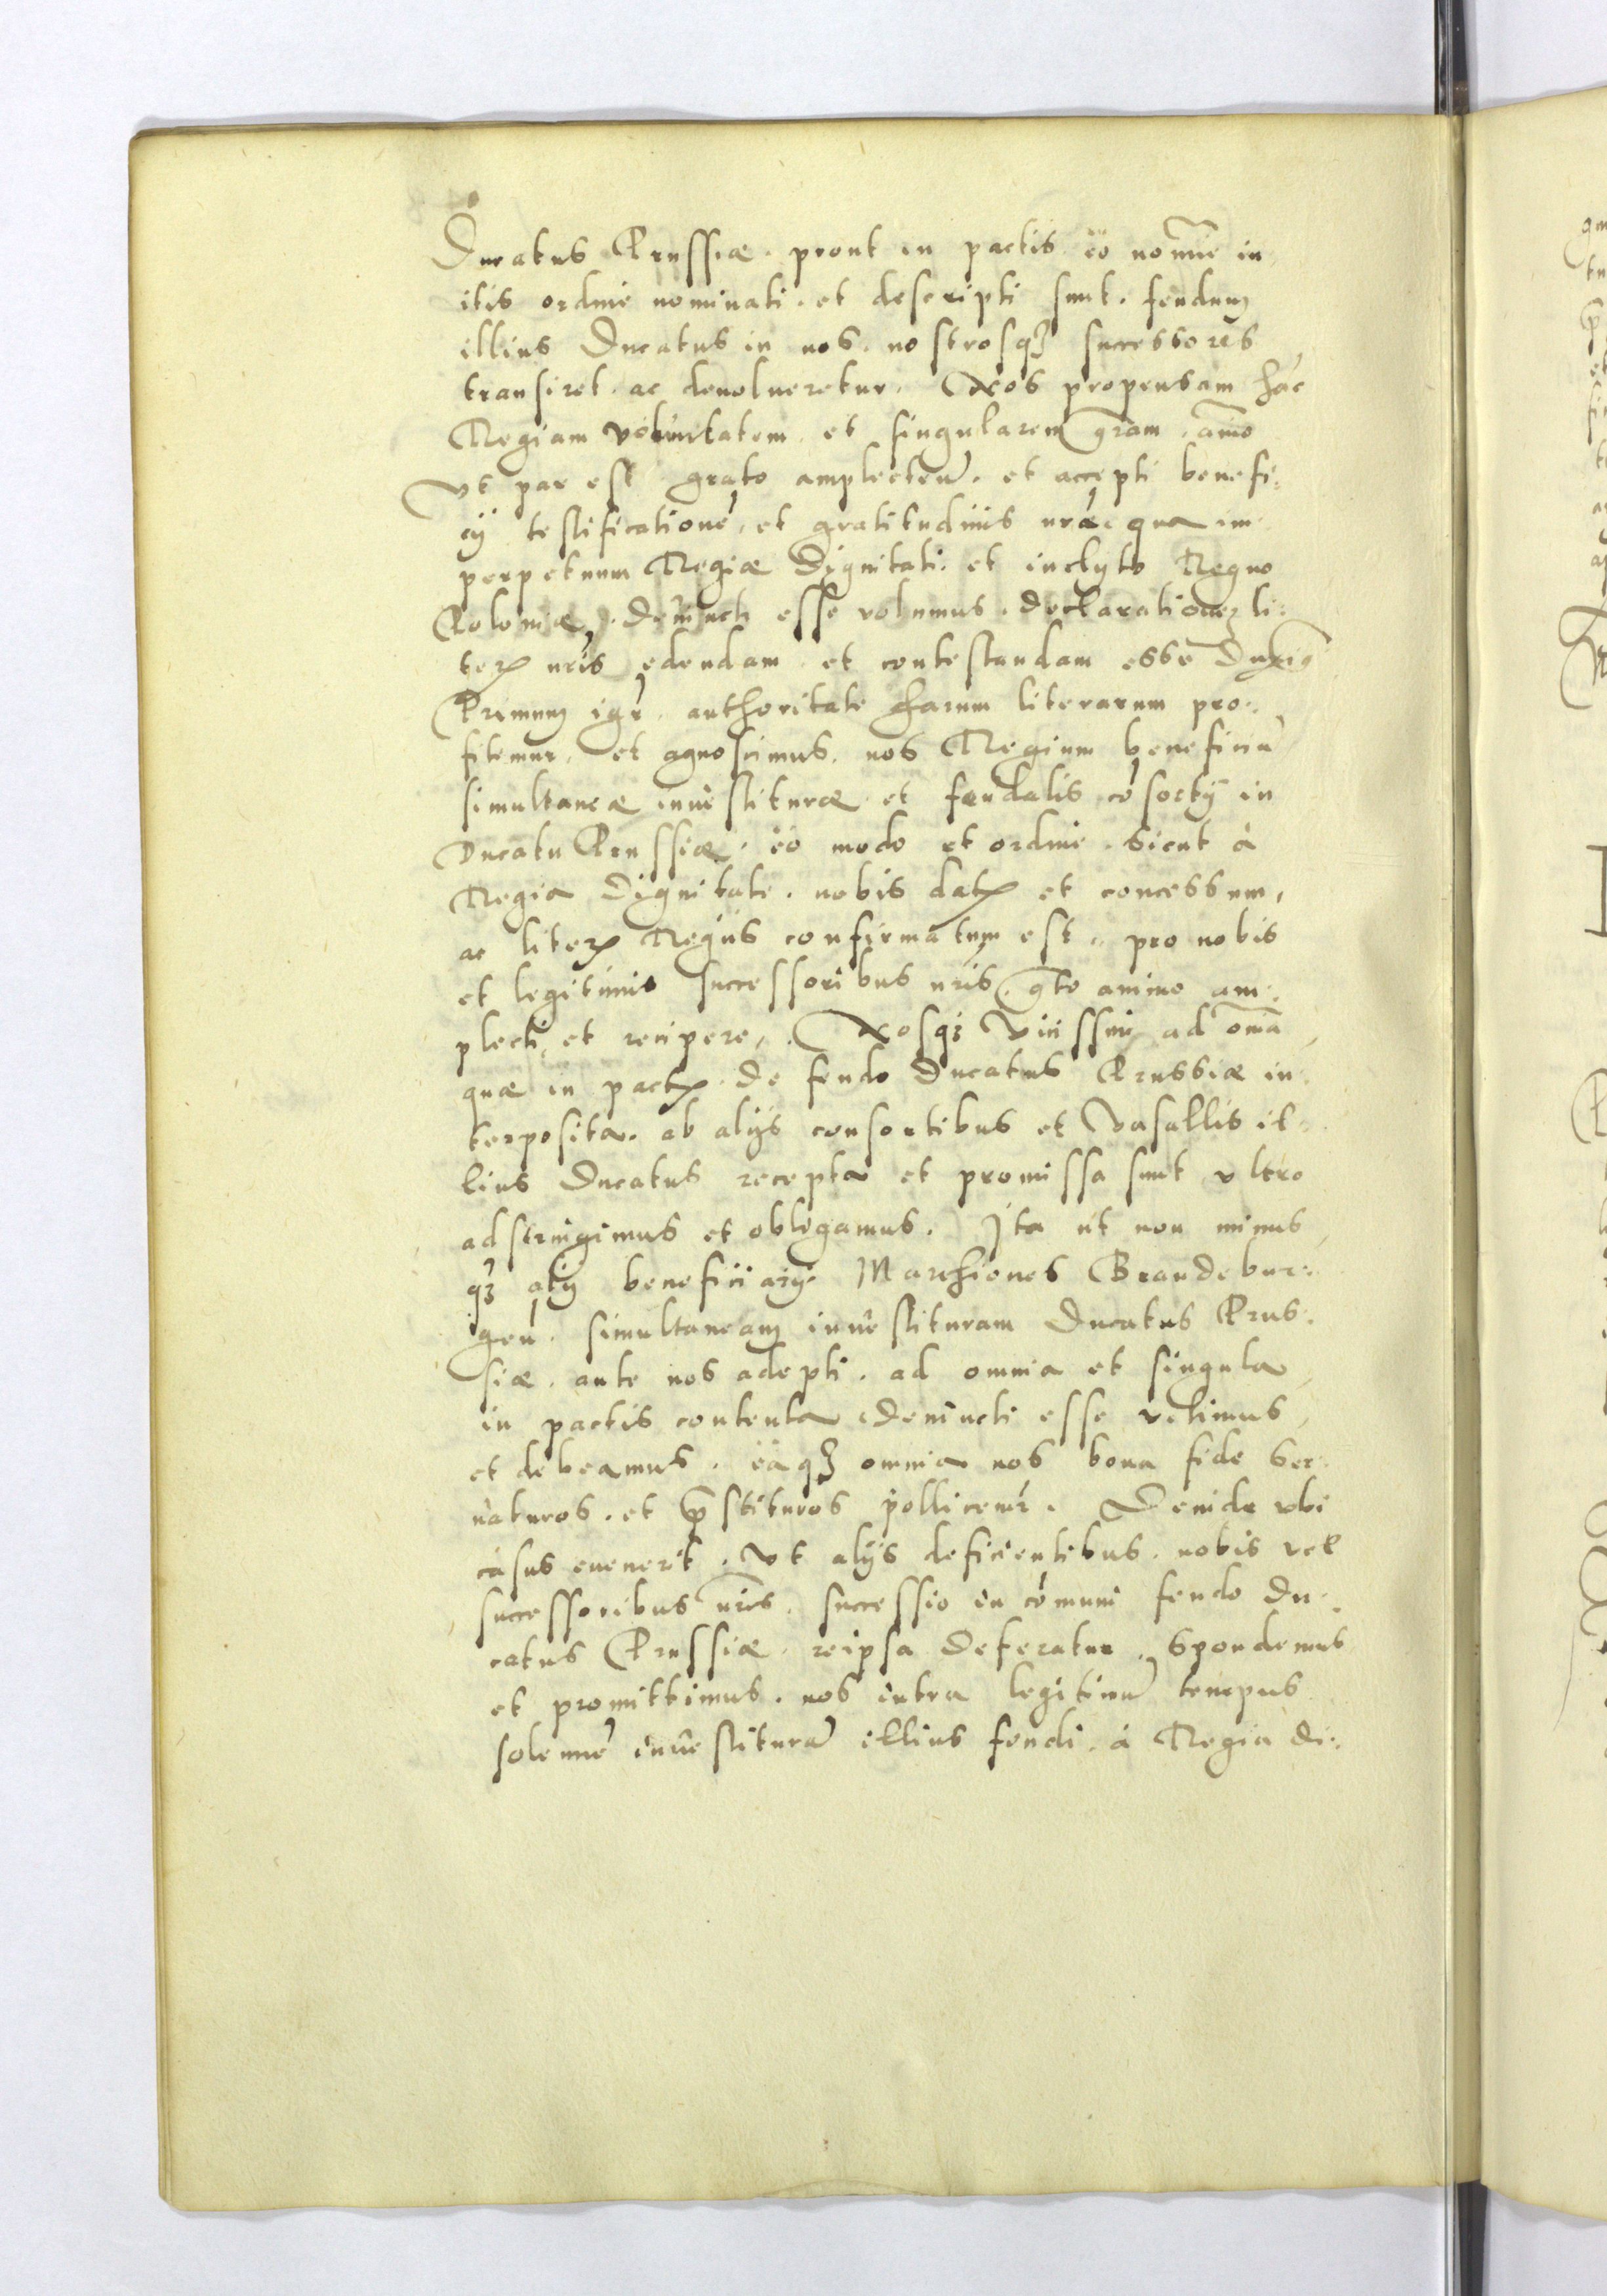 Ducatus Prussiæ. prout in pactis eo noīne in
itis ordine nominati. et descripti sunt. feudum
illius Ducatus in nos. nostrosq3 successores
transiret. ac deuolueretur. Nos propensam hāc
Regiam voluntatem et singularem gr̄am aīmo
vt par est grato amplecten̄. et accepti benefi:
cij testificationē, et gratitudinis nr̄æ qua im
perpetuum Regiæ Dignitati. et inclyto Regno
Poloniæ deuincti esse volumus. declarationem li:
ter̄ nr̄is edendam et contestandam esse Duxim9
Primum igr̄. authoritate harum literarum pro:
fitemur, et agnoscimus. nos Regium beneficiū
simultaneæ inuestituræ et feudalis cōsortij in
Ducatu Prussiæ. eo modo et ordine. sicut à
Regia Dignitate. nobis dat̄ et concessum,
ac liter̄ Regijs confirmatum est. pro nobis
et legitimis successoribus nr̄is. gto animo am:
plecti et recipere. Nosq3 Vicissim ad om̄ia
quæ in pact̄ de feudo Ducatus Prussiæ in
terposita. ab alijs consortibus et Vasallis il
lius Ducatus recepta et promissa sunt vltro
adstringimus et obligamus. Ita ut non minus
q3 alij beneficiarij Marchiones Brandebur:
gen̄. simultaneam inuestituram Ducatus Prus:
siæ. ante nos adepti. ad omnia et singula
in pactis contenta deuincti esse velimus
et debeamus. eaq3 omnia nos bona fide ser
uaturos. et p̄stituros pollicemr̄. Deinde vbi
casus euenerit. vt alijs deficientibus. nobis vel
successoribus nr̄is. successio in cōmuni feudo Du:
catus Prussiæ. reipsa deferatur. Spondemus
et promittimus. nos intra legitimū tempus
solennē inuestiturā illius feudi. à Regia di: